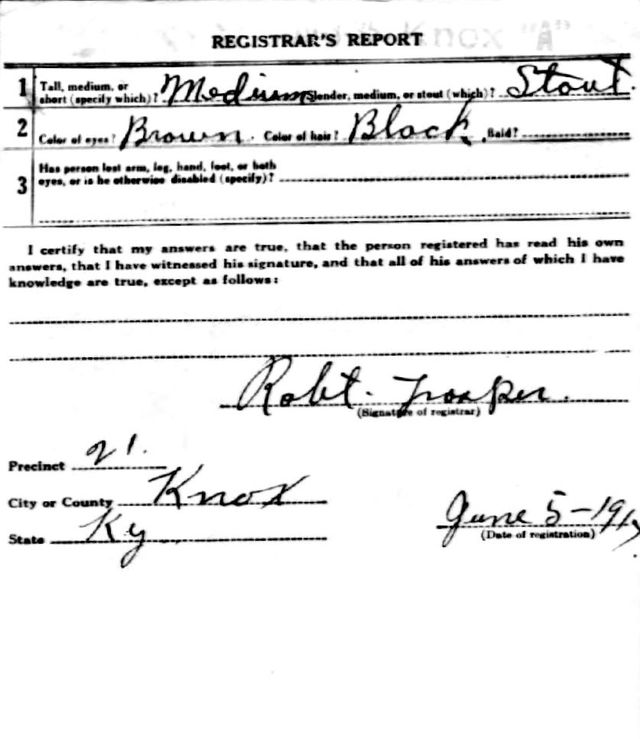 REGISTRAR'S REPORT
1 Tall, medium, or short (specify which)? Medium Slender, medium, or stout (which)? Stout.
2 Color of eyes? Brown. Color of hair? Black. Bald?
3 Has person lost arm, leg, hand, foot, or both
eyes, or is he otherwise disabled (specify)?
I certify that my answers are true, that the person registered has read his own
answers, that I have witnessed his signature, and that all of his answers of which I have
knowledge are true, except as follows:
Robt.
(Signature of registrar)
Precinct 21.
City or County Knox
State Ky
June 5-1917
(Date of registration)